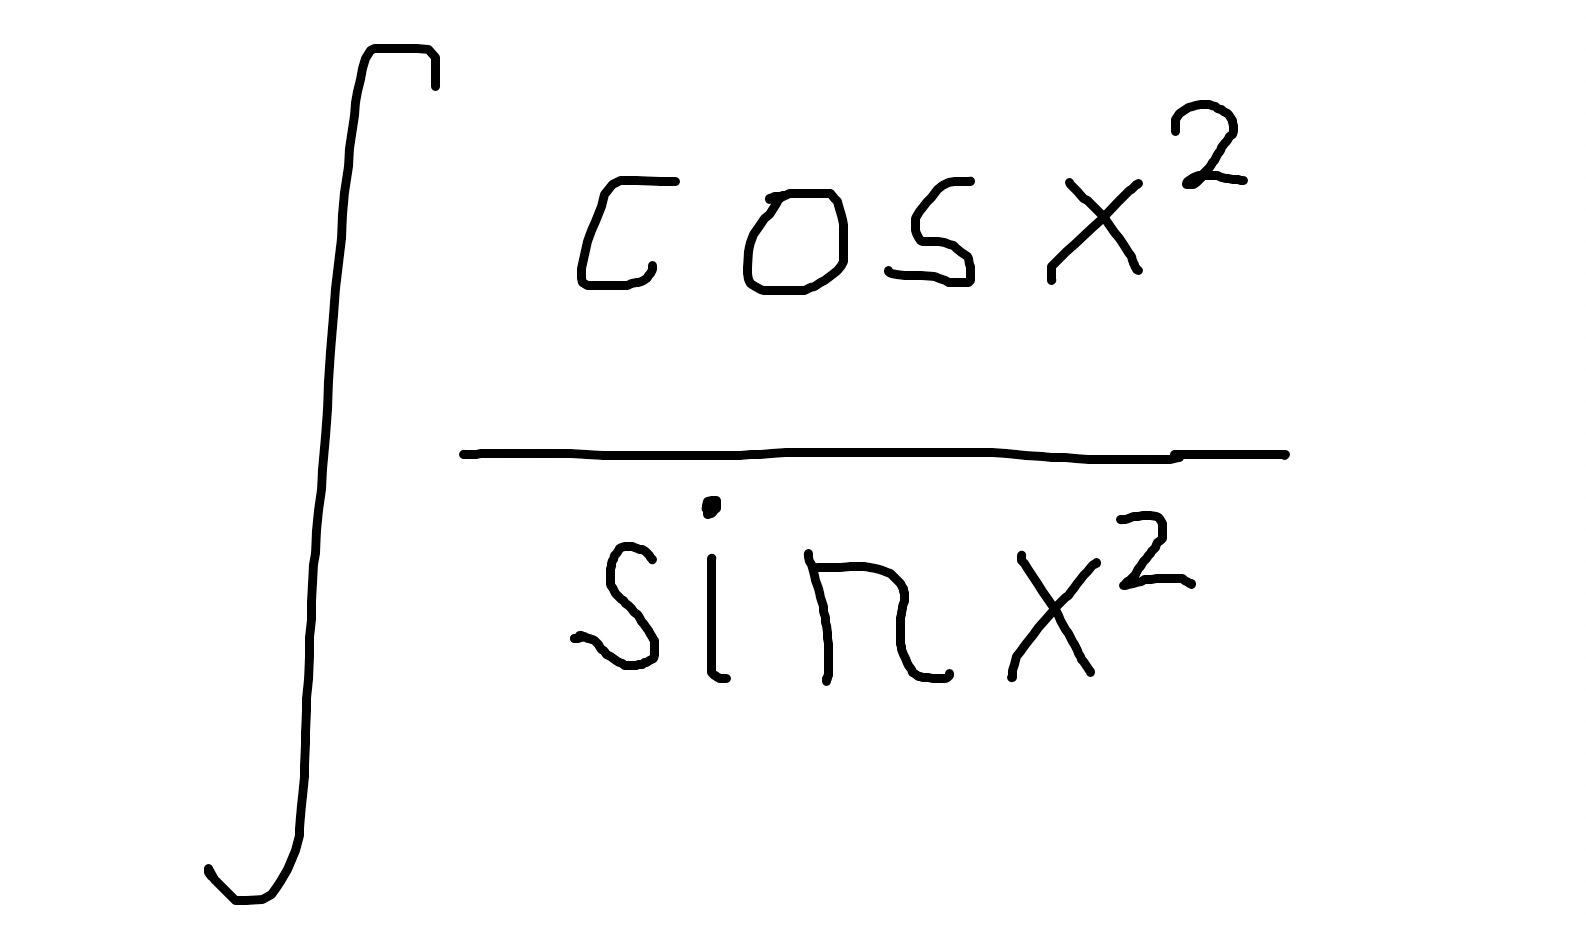 ∫ cos x²
sin x²